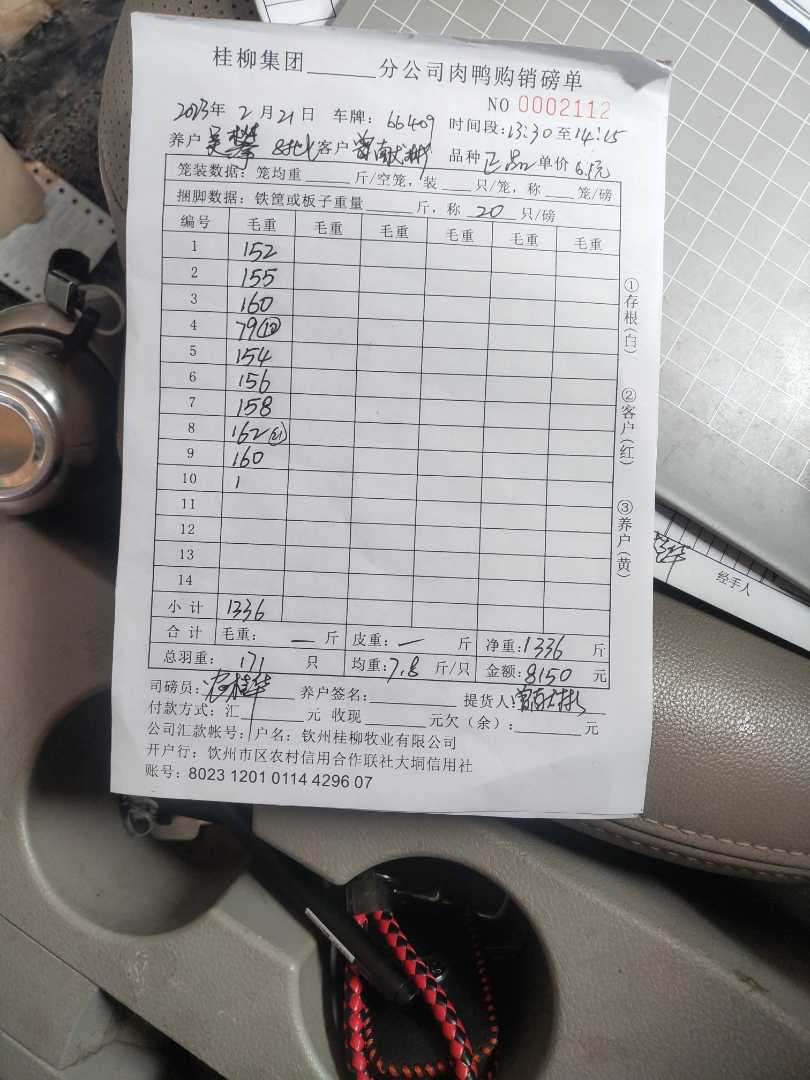 桂柳集团______分公司肉鸭购销磅单
NO 0002112
2023年 2月 21日 车牌: 66409 时间段: 13:30 至 14:15
养户 吴攀 客户 品种 正品 单价 6.1元
笼装数据: 笼均重______斤/空笼, 装____只/笼, 称____笼/磅
捆脚数据: 铁筐或板子重量______斤, 称 20 只/磅
编号 毛重 毛重 毛重 毛重 毛重 毛重
1 152
2 155
3 160
4 79(10)
5 154
6 156
7 158
8 162(21)
9 160
10 1
11
12
13
14
小计 1336
合计 毛重: — 斤 皮重: — 斤 净重: 1336 斤
总羽重: 171 只 均重: 7.8 斤/只 金额: 8150 元
司磅员: 养户签名:______ 提货人:
付款方式: 汇______元 收现______元欠(余):______元
公司汇款帐号: 户名: 钦州桂柳牧业有限公司
开户行: 钦州市区农村信用合作联社大垌信用社
账号: 8023 1201 0114 4296 07
①存根(白)
②客户(红)
③养户(黄)
经手人